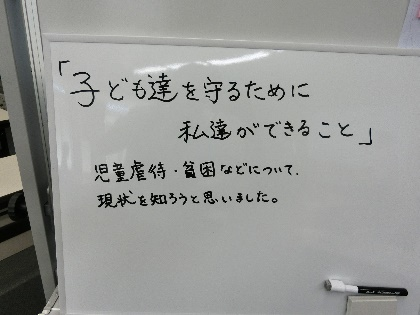 「子ども達を守るために
私達ができること」
児童虐待・貧困などについて、
現状を知ろうと思いました。